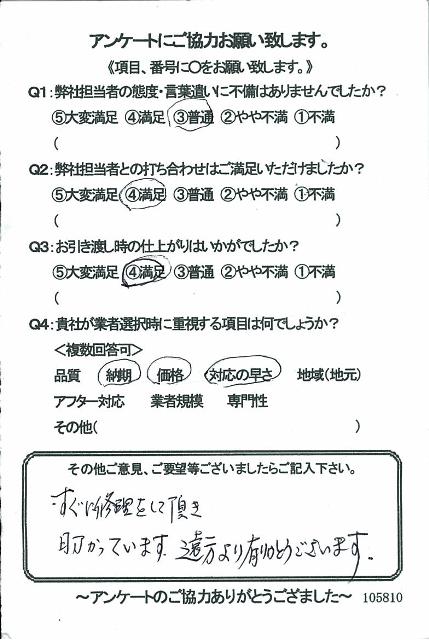 アンケートにご協力お願い致します。
《項目、番号に○をお願い致します。》
Q1:弊社担当者の態度・言葉遣いに不備はありませんでしたか?
⑤大変満足 ④満足 ③普通 ②やや不満 ①不満
( )
Q2:弊社担当者との打ち合わせはご満足いただけましたか?
⑤大変満足 ④満足 ③普通 ②やや不満 ①不満
( )
Q3:お引き渡し時の仕上がりはいかがでしたか?
⑤大変満足 ④満足 ③普通 ②やや不満 ①不満
( )
Q4:貴社が業者選択時に重視する項目は何でしょうか?
＜複数回答可＞
品質 納期 価格 対応の早さ 地域(地元)
アフター対応 業者規模 専門性
その他( )
その他ご意見、ご要望等ございましたらご記入下さい。
すぐに修理をして頂き
助かっています。遠方より有りがとうございます。
～アンケートのご協力ありがとうござました～ 105810